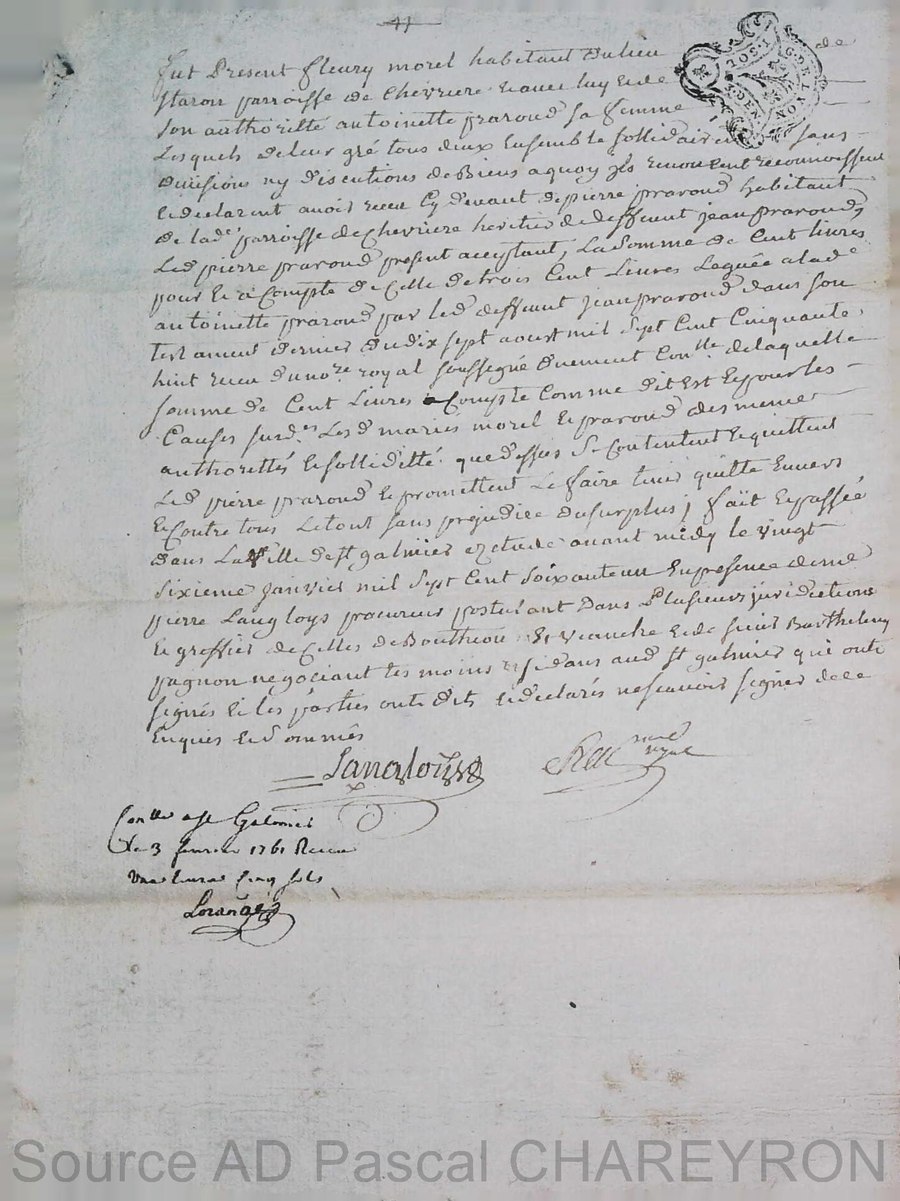 41
fut Present fleury morel habitant du lieu de
parroisse de Chevriere et avec luy et de
son authoritté antoinette praroud sa femme
Lesquels de leur gré tous deux Ensemble sollidairement sans
divisions ny discutions de Biens a quoy ils renoncent reconnoissent
et declarent avoir receu Cy devant de pierre praroud habitant
de lade parroisse de Chevriere heritier de deffunt jean praroud,
Led pierre praroud present acceptant, La somme de Cent livres
pour et a Compte de Celle de trois Cent Livres Leguée a lade
antoinette praroud par led deffunt jean praroud dans son
testament dernier du dix sept aoust mil sept Cent Cinquante
huit receu du nore royal soussegné duement Conlle de laquelle
somme de Cent Livres a Compte Comme dit Est Et pour les
Causes surdes Les d mariés morel et praroud des meme
authorittés et solliditté que dessus se Contentent et quittent
Led pierre praroud et promettent Le faire tenir quitte Envers
et Contre tous Le tout sans prejudice du surplus; fait et passé
dans La ville de st galmier ez etude avant midy le vingt
sixieme janvier mil sept Cent soixante un En presence de me
pierre Langloys procureur postulant dans Plusieurs juridictions
et greffier de Celles de Boutheon et veauche et de sieur Barthelemy
pagnon negociant temoins residans aud st galmier qui onts
signés et les parties onts dits et declarés ne scavoir signer de ce
Enquis et sommés
Langloys
Conlle a st Galmier
Le 3 fevrier 1761 Receu
une livre cinq sols
G.DE LYON
Source AD Pascal CHAREYRON